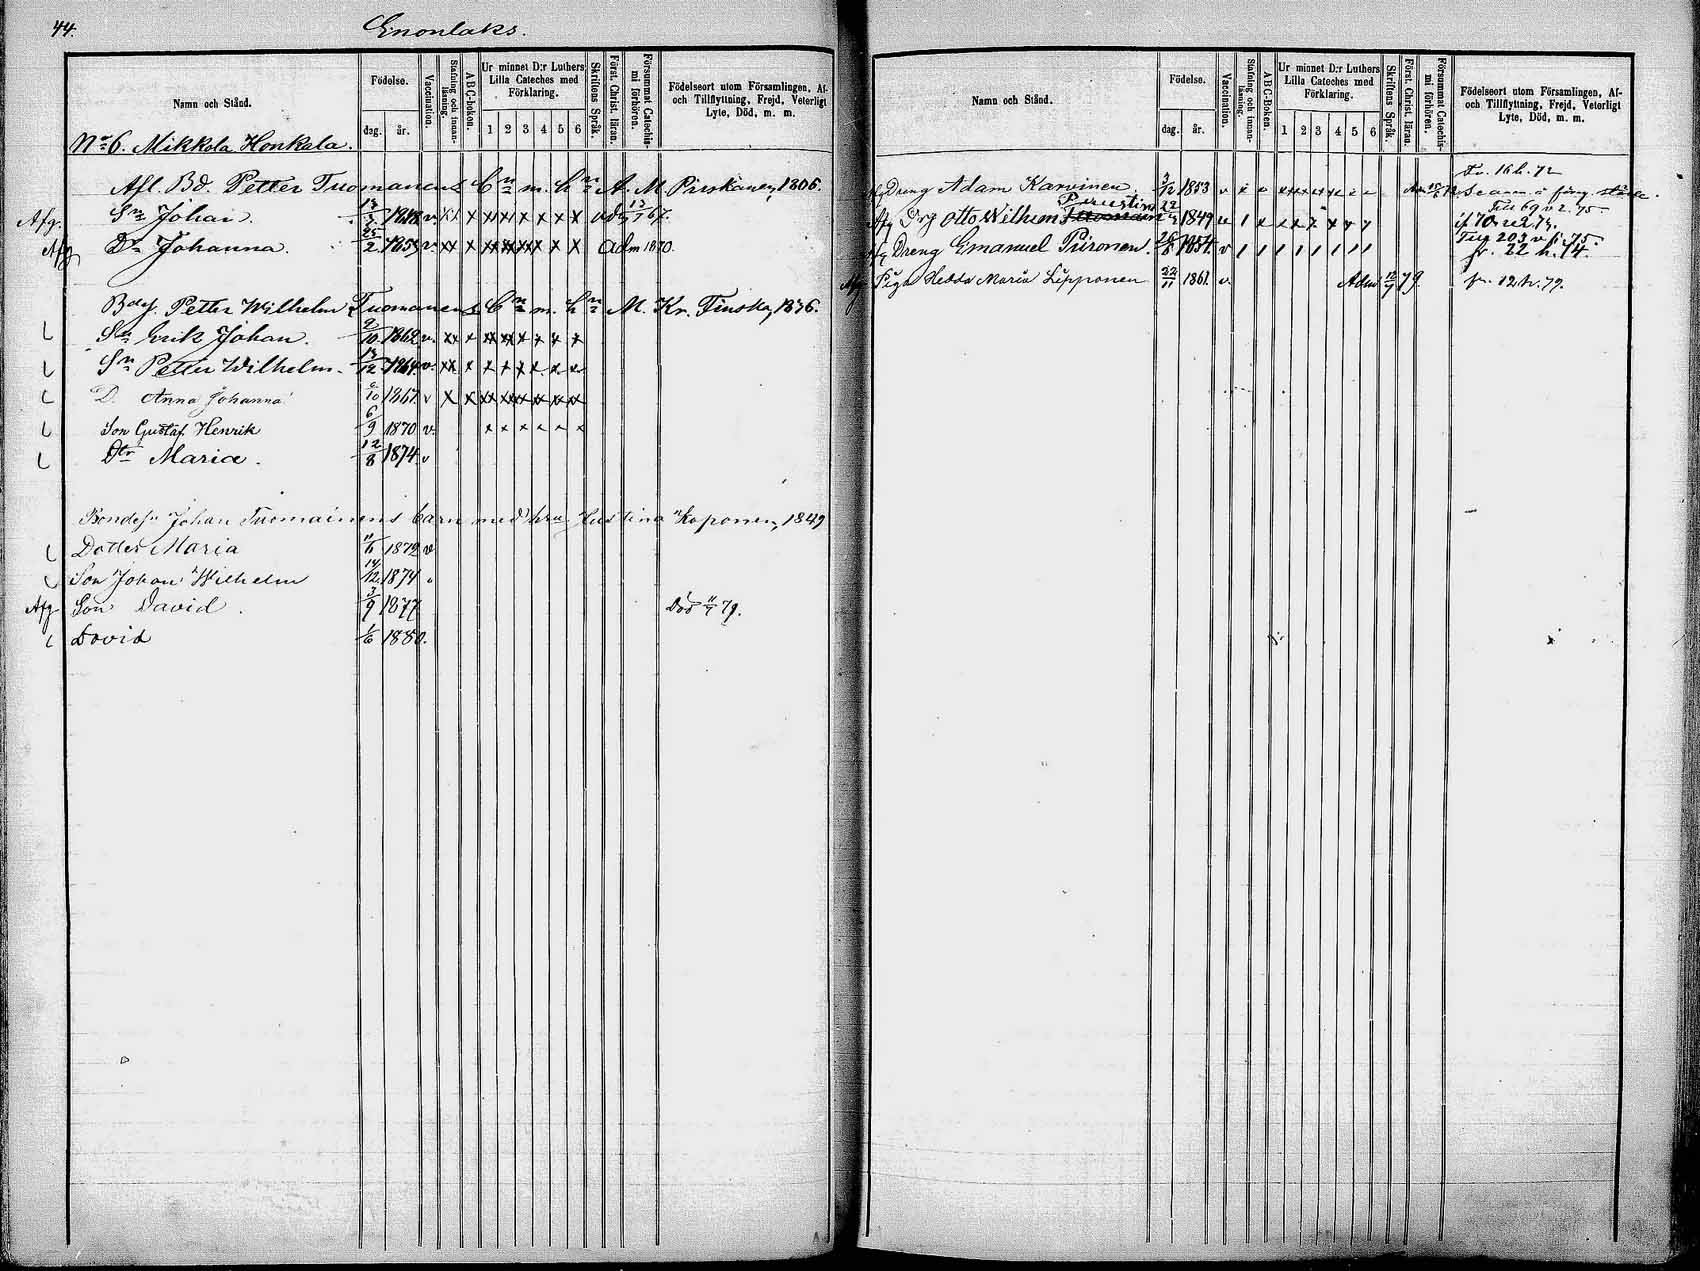 44.
Enonlaks.
Namn och Stånd.
Födelse.
dag.
år.
Vaccination.
Stafning och innan-läsning.
ABC-bokon.
Ur minnet D:r Luthers Lilla Cateches med Förklaring.
1 2 3 4 5 6
Skriftens Språk.
Först. Christ. läran.
Försummat Catechismi förhören.
Födelseort utom Församlingen, Af- och Tillflyttning, Frejd, Veterligt Lyte, Död, m. m.
No 6. Mikkola Honkala.
Afl. Bd. Petter Tuomainens bn m. hn A. M. Piiskanen, 1806.
Afg. Sn Johan. v.
Afg Dr Johanna. 25/2 1853 v. adm 1870.
Bdes. Petter Wilhelm Tuomainens bn m. hn M. Kr. Tinska, 1836.
Sn Erik Johan. 2/10 1862 v.
Sn Petter Wilhelm. 13/12 1864 v.
D. Anna Johanna 10 1867 v
Son Gustaf Henrik 6/9 1870 v.
Dtr Maria. 12/8 1874 v
Bondes. Johan Tuomainens barn med hru Justina Koponen, 1849
Dotter Maria 11/6 1872 v
Son Johan Wilhelm 14/12 1874
Afg Son David. 3/9 1877 Död 11/7 79.
David 1/6 1880.
Namn och Stånd.
Födelse.
dag.
år.
Vaccination.
Stafning och innan-läsning.
ABC-Boken.
Ur minnet D:r Luthers Lilla Cateches med Förklaring.
1 2 3 4 5 6
Skriftens Språk.
Först. Christ. läran.
Försummat Catechismi förhören.
Födelseort utom Församlingen, Af- och Tillflyttning, Frejd, Veterligt Lyte, Död, m. m.
Fr. 16 h. 72
Afg Dreng Adam Karvinen. 3/12 1853 v
Till 69 v 2. 75.
Afg Drg Otto Wilhem 1849 v
Afg Dreng Emanuel Piironen. 26/8 1854. v fr. 22 h. 74.
Afg Piga Hedda Maria Lipponen 22/11 1861. v. Adm 12/7 79. fr. 12 h. 79.